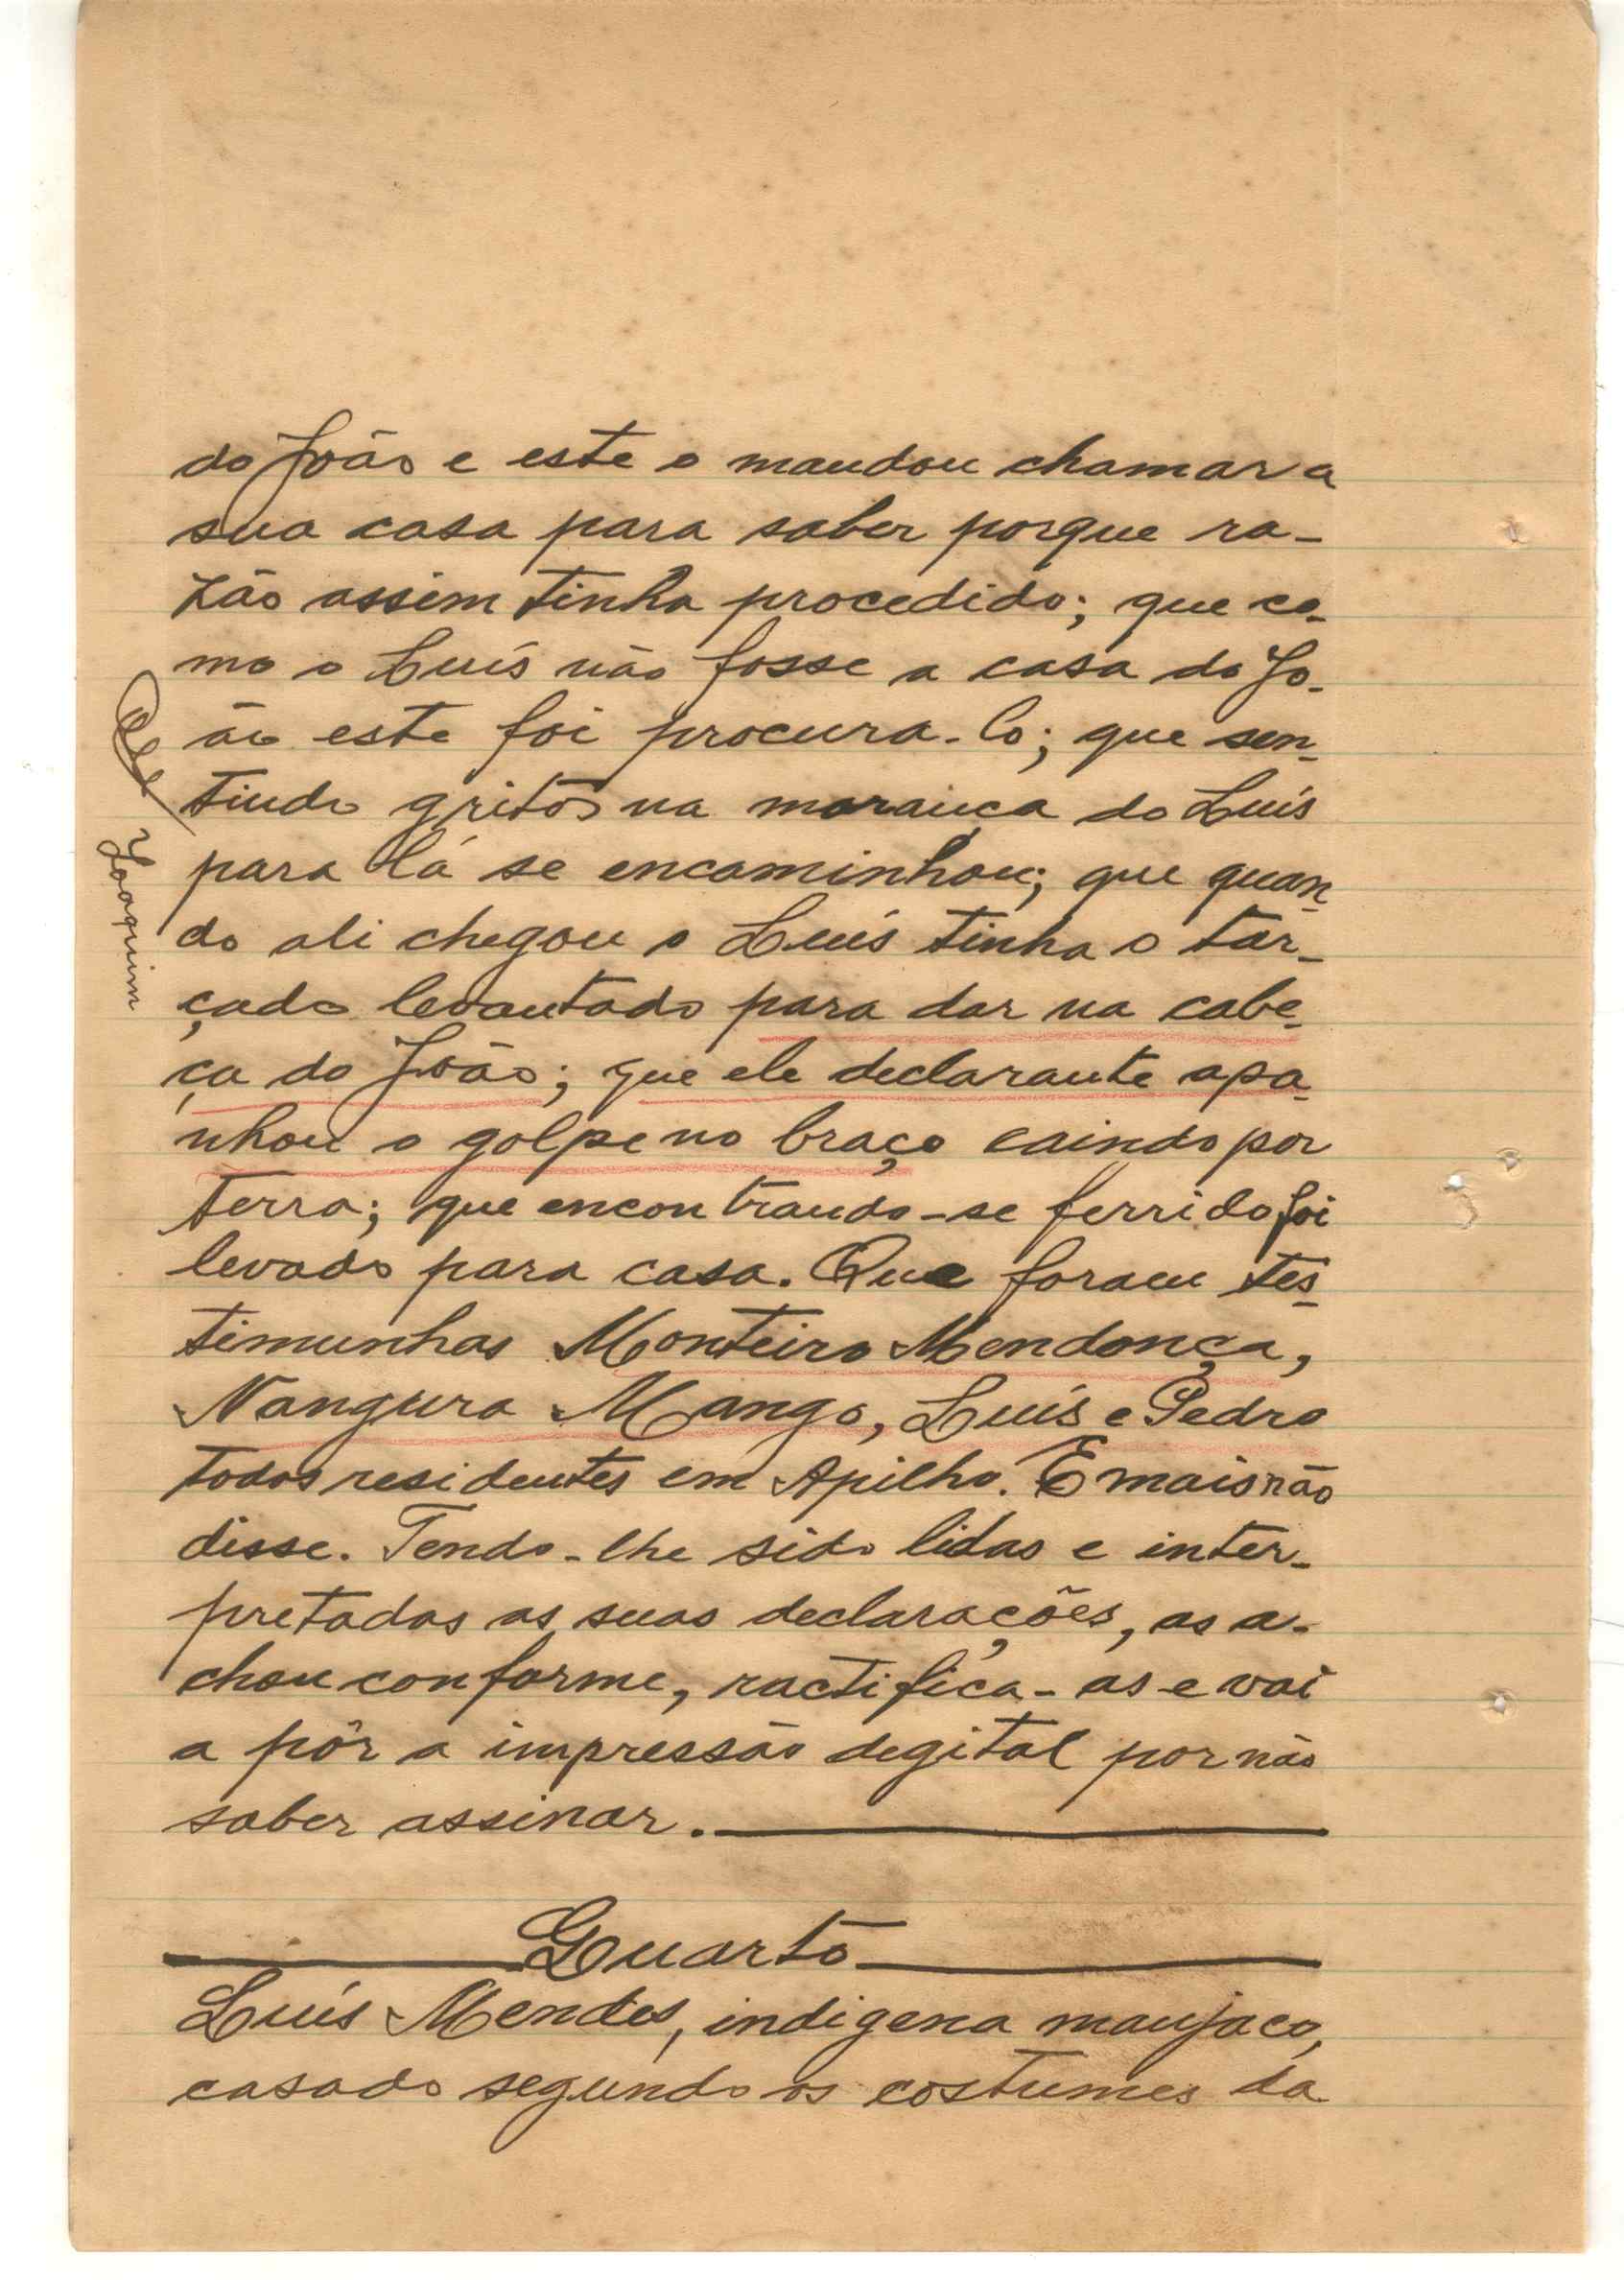 do João e este o mandou chamar a
sua casa para saber porque ra-
zão assim tinha procedido; que co-
mo o Luís não fosse a casa do Jo-
ão este foi procura-lo; que sen-
tindo gritos na morança do Luís
para lá se encaminhou; que quan-
do ali chegou o Luís tinha o tar-
çado levantado para dar na cabe-
ça do João; que ele declarante apa-
nhou o golpe no braço caindo por
terra; que encontrando-se ferrido foi
levado para casa. Que foram tes-
timunhas Monteiro Mendonça,
Nangura Mango, Luís e Pedro
todos residentes em Apilho. E mais não
disse. Tendo-lhe sido lidas e inter-
pretadas as suas declarações, as a-
chou conforme, ractifica-as e vai
a pôr a impressão degital por não
saber assinar.
Quarto
Luís Mendes, indigena manjaco,
casado segundo os costumes da
Joaquim